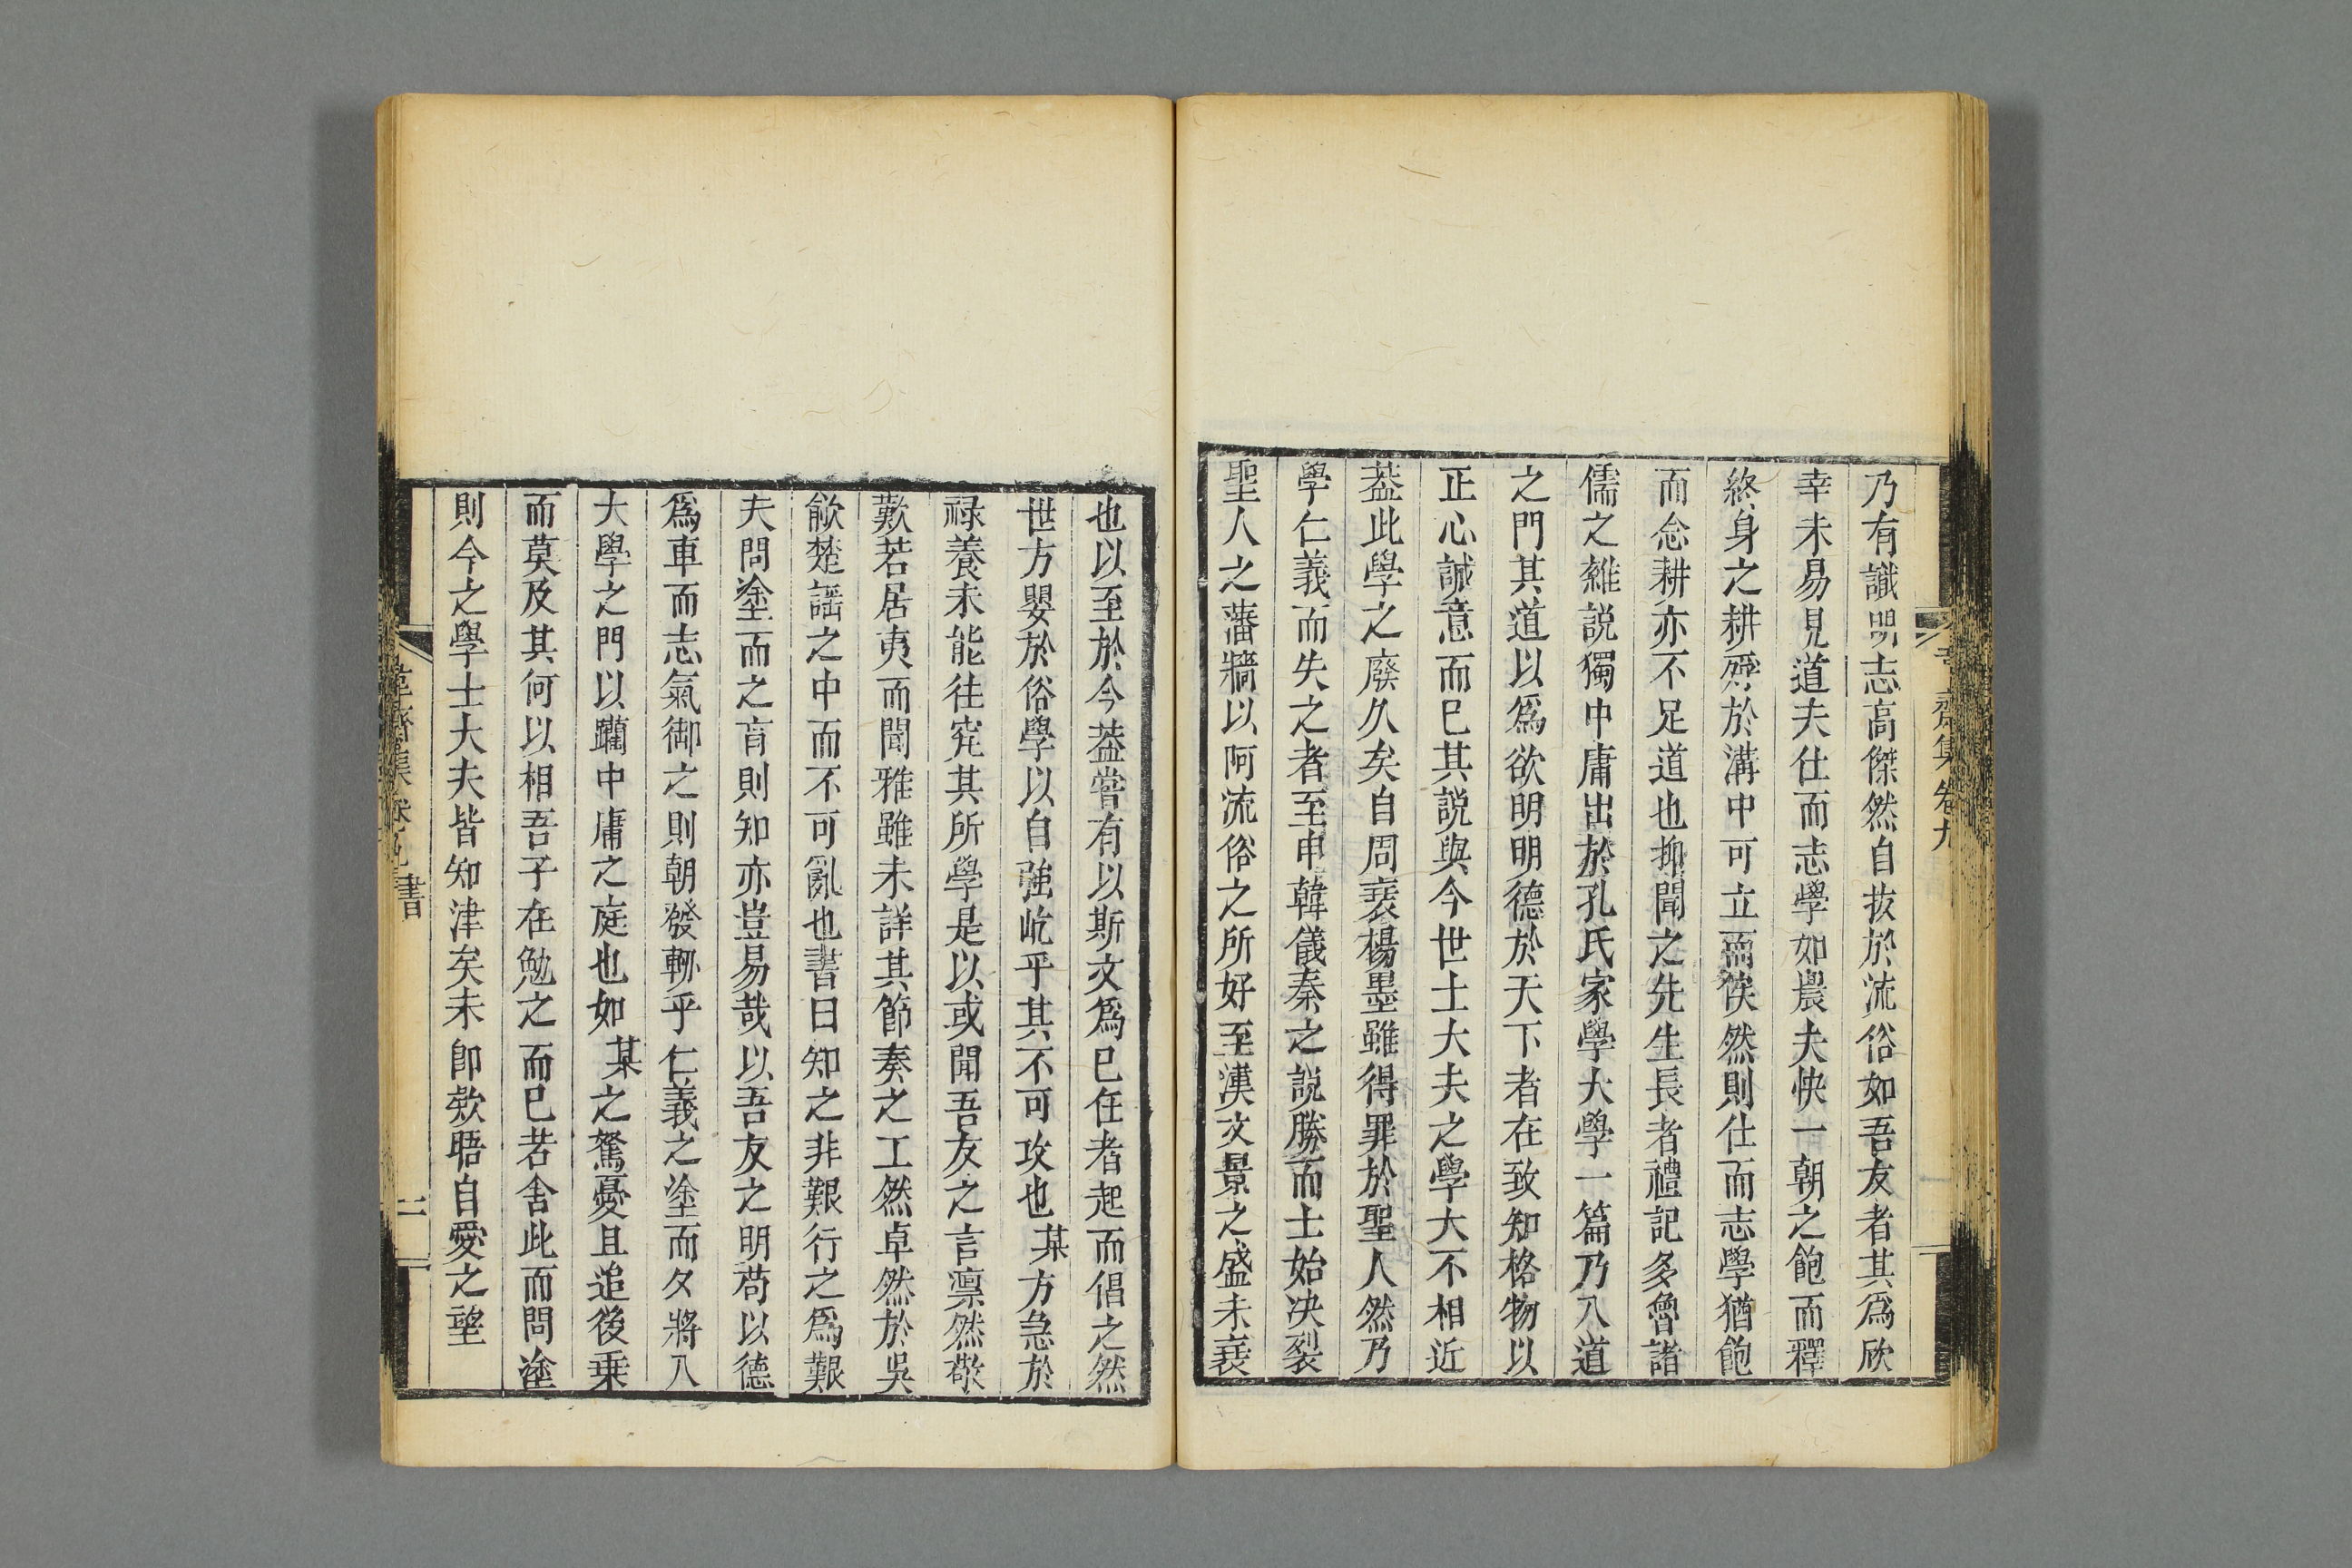 乃有識明志高傑然自拔於流俗如吾友者其爲欣
幸未易見道夫仕而志學如農夫快一朝之飽而釋
終身之耕殍於溝中可立而俟然則仕而志學猶飽
而念耕亦不足道也抑聞之先生長者禮記多魯諸
儒之雜説獨中庸出於孔氏家學大學一篇乃入道
之門其道以爲欲明明德於天下者在致知格物以
正心誠意而已其説與今世士大夫之學大不相近
葢此學之廢久矣自周衰楊墨雖得罪於聖人然乃
學仁義而失之者至申韓儀秦之説勝而士始决裂
聖人之藩牆以阿流俗之所好至漢文景之盛未衰
也以至於今葢嘗有以斯文爲已任者起而倡之然
世方嬰於俗學以自強屹乎其不可攻也某方急於
禄養未能往究其所學是以或聞吾友之言凛然敬
歎若居夷而聞雅雖未詳其節奏之工然卓然於吳
歈楚謡之中而不可亂也書曰知之非艱行之爲艱
夫問塗而之肓則知亦豈易哉以吾友之明苟以德
爲車而志氣御之則朝發軔乎仁義之塗而夕將入
大學之門以躪中庸之庭也如某之駑憂且追後乗
而莫及其何以相吾子在勉之而已若舍此而問塗
則今之學士大夫皆知津矣未卽欸晤自愛之望
韋齋集卷九 書 二